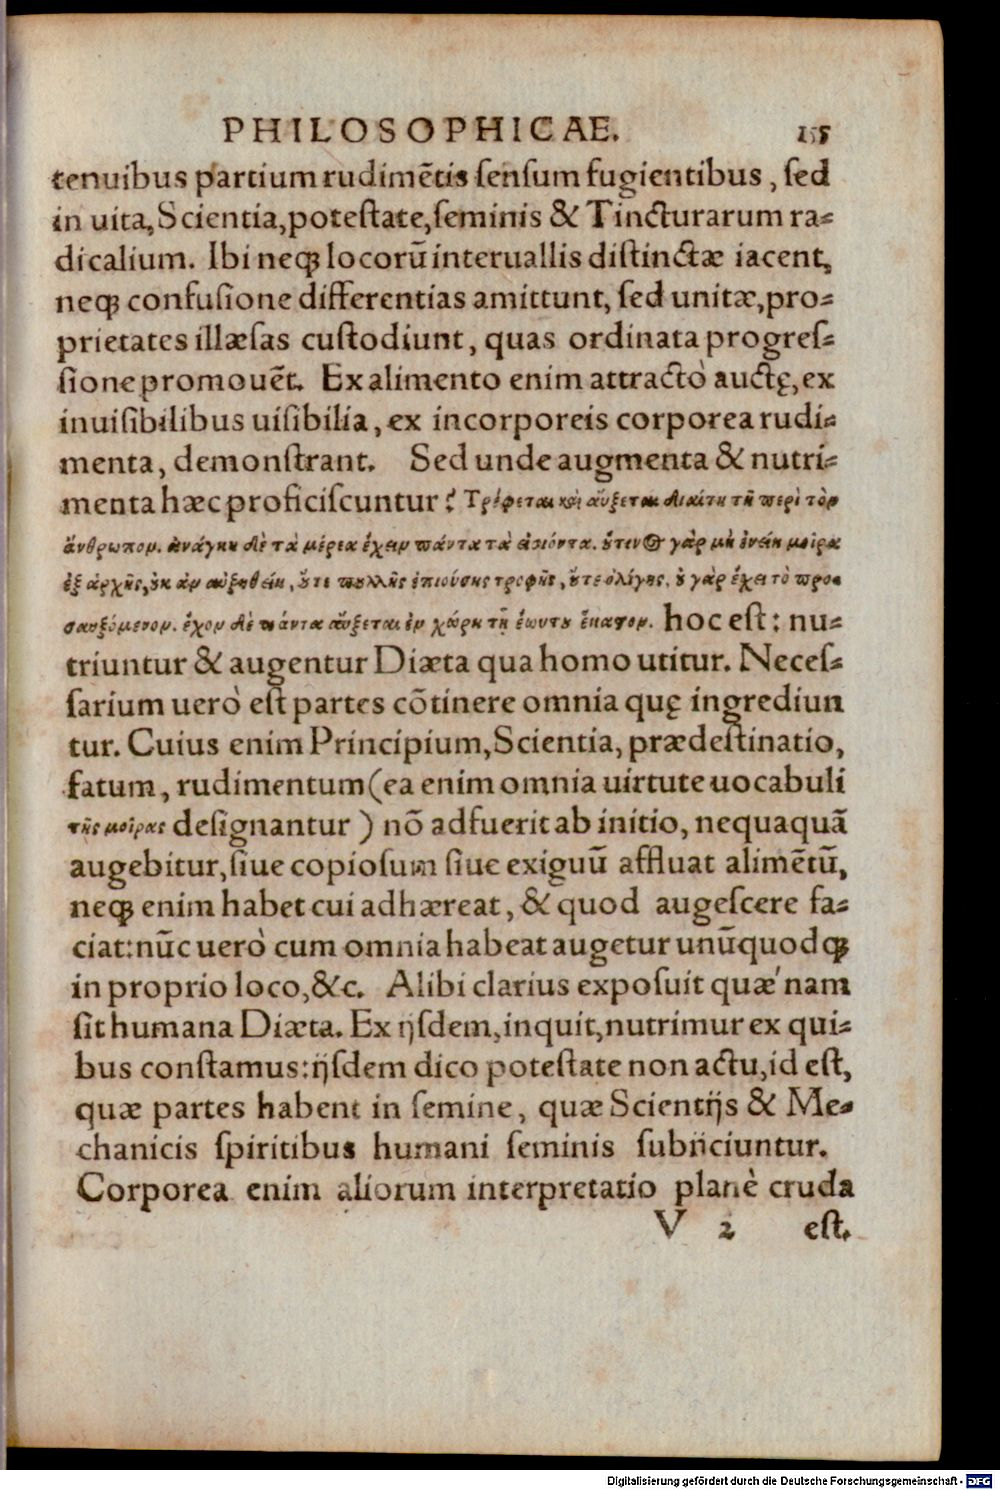 PHILOSOPHICAE. 155
tenuibus partium rudimẽtis ſenſum fugientibus, ſed
in uita, Scientia, poteſtate, ſeminis & Tincturarum ra-
dicalium. Ibi neq́ꝫ locorũ interuallis diſtinctæ iacent,
neq́ꝫ confuſione differentias amittunt, ſed unitæ, pro-
prietates illæſas cuſtodiunt, quas ordinata progreſ-
ſione promouẽt. Ex alimento enim attracto auctę, ex
inuiſibilibus uiſibilia, ex incorporeis corporea rudi-
menta, demonſtrant. Sed unde augmenta & nutri-
menta hæc proficiſcuntur? Τρέφεται καὶ ἄυξεται διαίτη τῆ περὶ τὸν
ἄνθρωπον. ἀνάγκη δὲ τὰ μέρεα ἔχειν πάντα τὰ ἐσιόντα. ὅτινος γὰρ μὴ ἐνείη μοῖρα
ἐξ ἀρχῆς, οὐκ ἂν αὐξηθείη, ὄυτε πολλῆς ἐπιούσης τροφῆς, ὄυτε ὀλίγης. ὀυ γὰρ ἔχει τὸ προ-
σαυξόμενον. ἔχον δὲ πάντα ἄυξεται ἐν χώρη τῇ ἑωυτοῦ ἕκαστον. hoc eſt: nu-
triuntur & augentur Diæta qua homo utitur. Neceſ-
ſarium uerò eſt partes cõtinere omnia quę ingrediun
tur. Cuius enim Principium, Scientia, prædeſtinatio,
fatum, rudimentum (ea enim omnia uirtute uocabuli
τῆς μοίρας deſignantur) nõ adfuerit ab initio, nequaquã
augebitur, ſiue copioſum ſiue exiguũ affluat alimẽtũ,
neq́ꝫ enim habet cui adhæreat, & quod augeſcere fa-
ciat: nũc uerò cum omnia habeat augetur unũquodq́ꝫ
in proprio loco, &c. Alibi clarius expoſuit quæ´nam
ſit humana Diæta. Ex ijſdem, inquit, nutrimur ex qui-
bus conſtamus: ijſdem dico poteſtate non actu, id eſt,
quæ partes habent in ſemine, quæ Scientijs & Me-
chanicis ſpiritibus humani ſeminis ſubijciuntur.
Corporea enim aliorum interpretatio planè cruda
V 2 eſt.
Digitalisierung gefördert durch die Deutsche Forschungsgemeinschaft - DFG